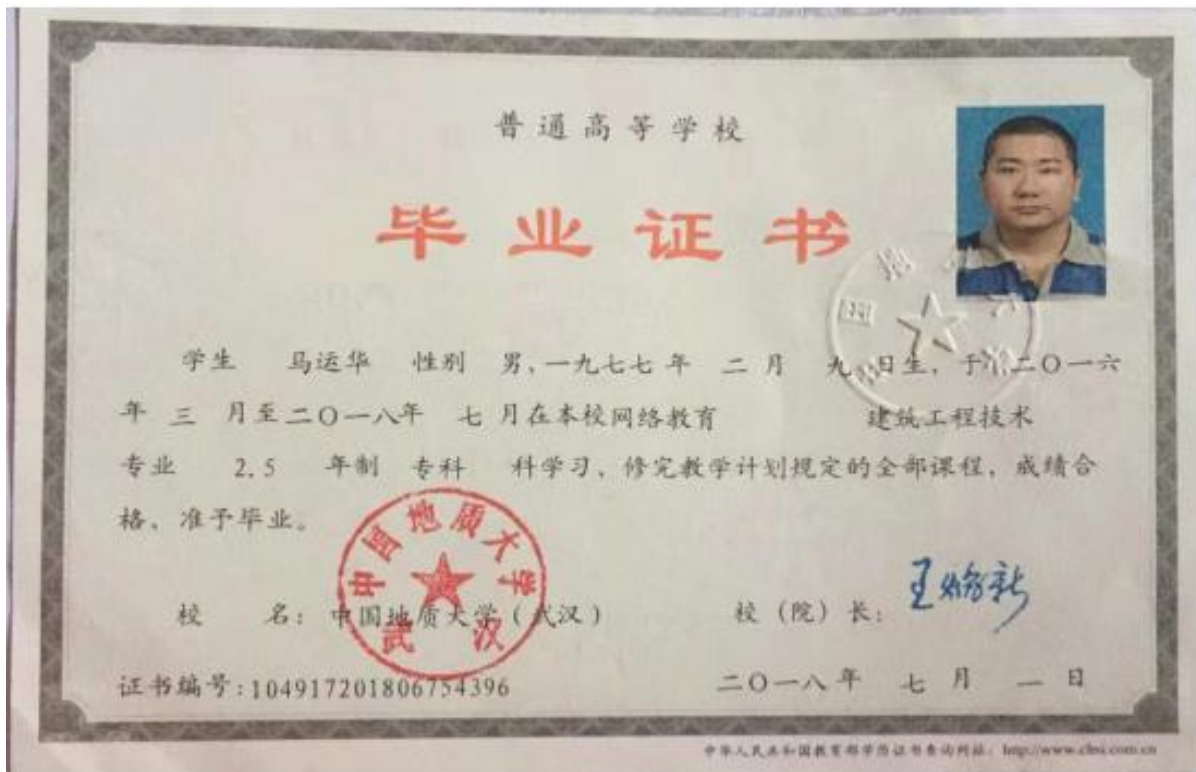 普通高等学校
毕业证书
学生 马运华 性别 男,一九七七年 二月 九日生,于 二〇一六
年 三 月至二〇一八年 七 月在本校网络教育 建筑工程技术
专业 2.5 年制 专科 科学习,修完教学计划规定的全部课程,成绩合
格,准予毕业。
中国地质大学
武汉
校 名:中国地质大学(武汉)
校(院)长:
王焰新
证书编号:104917201806754396
二〇一八年 七月 一日
中华人民共和国教育部学历证书查询网址:http://www.chsi.com.cn